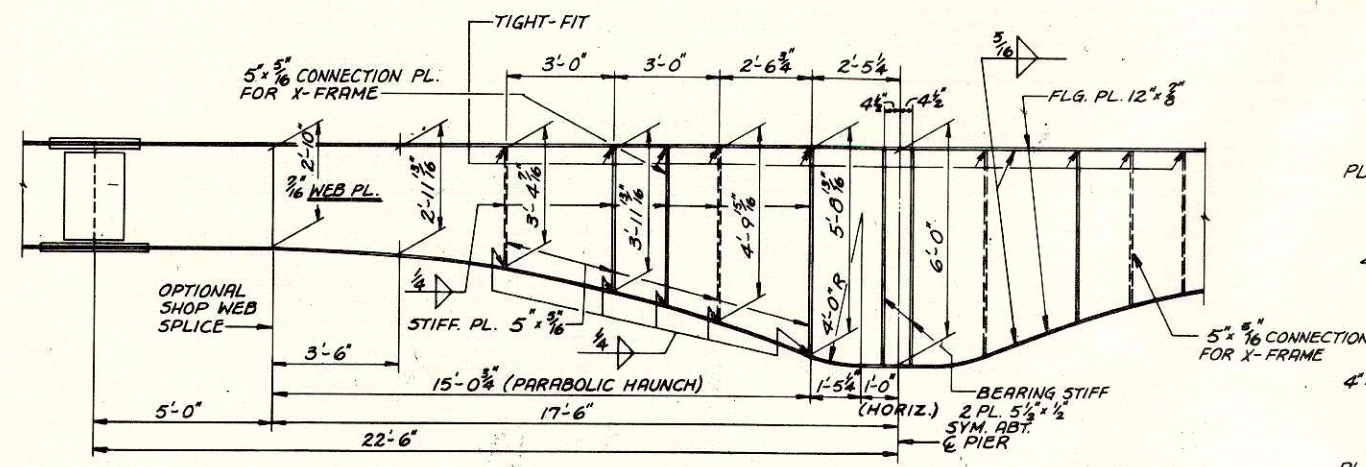 TIGHT-FIT
5" x 5/16" CONNECTION PL.
FOR X-FRAME
3'-0"
3'-0"
2'-6 3/4"
2'-5 1/4"
4 1/2"
4 1/2"
5/16
FLG. PL. 12" x 7/8"
2'-10"
7/16" WEB PL.
2'-11 13/16"
3'-4 7/16"
3'-11 13/16"
4'-9 15/16"
5'-8 13/16"
4'-0" R
6'-0"
PL
4
OPTIONAL
SHOP WEB
SPLICE
1/4
STIFF. PL. 5" x 5/16"
1/4
5" x 5/16" CONNECTION
FOR X-FRAME
3'-6"
15'-0 3/4" (PARABOLIC HAUNCH)
1'-5 1/4"
1'-0"
(HORIZ.)
BEARING STIFF
2 PL. 5 1/2" x 1/2"
SYM. ABT.
℄ PIER
4"
5'-0"
17'-6"
22'-6"